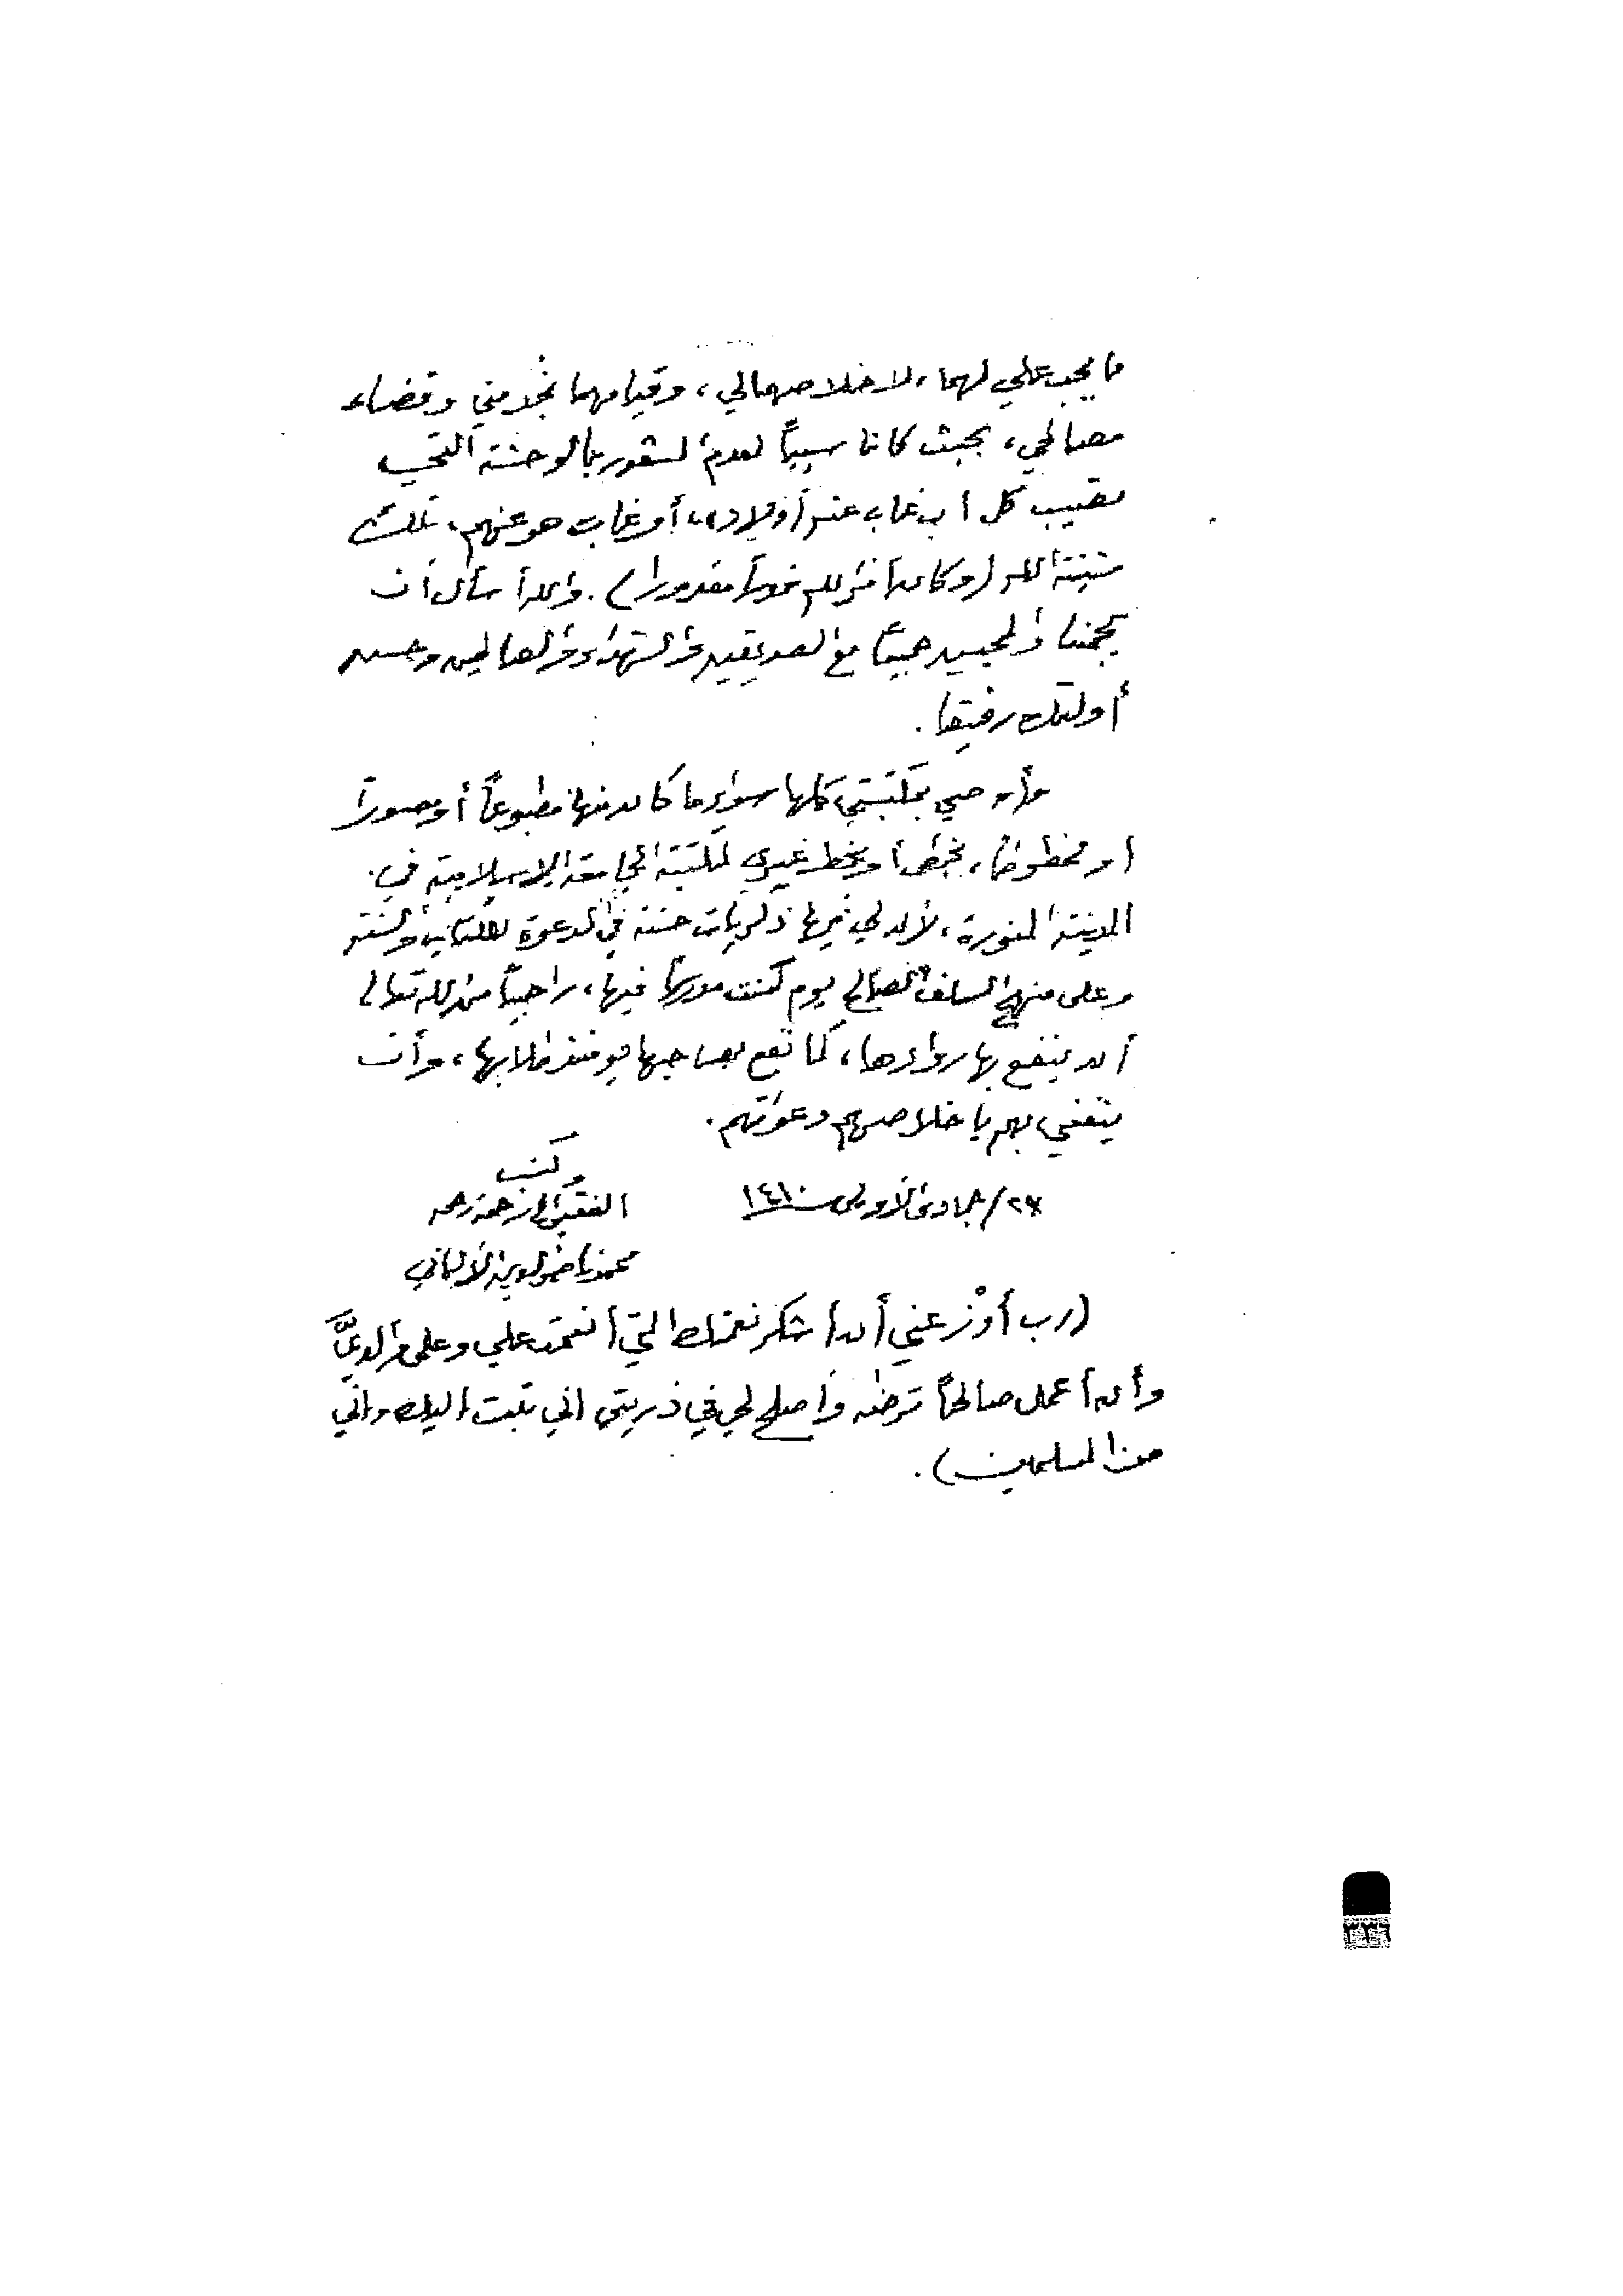 ما يجب علي لهما، لاخلاصهما لي، وقيامهما بخدمتي وقضاء
مصالحي، بحيث كانا سبباً لعدم الشعور بالوحشة التي
تصيب كل أب غاب عنه أولاده، أو غاب هو عنهم، تلك
مشيئة الله (وكان أمر الله قدراً مقدورا). والله أسأل أن
يجمعنا والمحبين جميعاً مع الصديقين والشهداء والصالحين وحسن
أولئك رفيقا.
وأوصي بمكتبتي كلها سواء ما كان منها مطبوعاً أو مصوراً
أو مخطوطاً، بخطي أو بخط غيري لمكتبة الجامعة الاسلامية في
المدينة المنورة، لأن لي فيها ذكريات حسنة في الدعوة للكتاب والسنة
وعلى منهج السلف الصالح يوم كنت مدرساً فيها، راجياً من الله تعالى
أن ينفع بها روادها، كما نفع بصاحبها يومئذ طلابها، وأن
ينفعني بهم باخلاصهم ودعواتهم.
وكتب
٢٧/جمادى الأولى ١٤١٠ الفقير إلى رحمة ربه
محمد ناصر الدين الألباني
(رب أوْزعني أن أشكر نعمتك التي أنعمت علي وعلى والديَّ
وأن أعمل صالحاً ترضاه وأصلح لي في ذريتي اني تبت اليك واني
من المسلمين).
٣٣٦